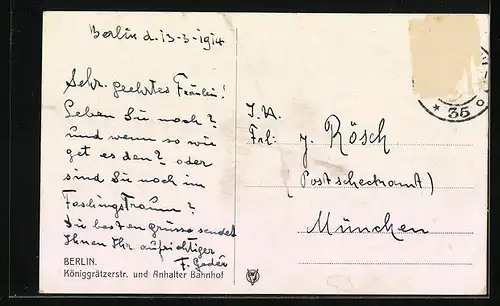 Berlin d. 13-3-1914
Sehr geehrtes Fräulein!
Leben Sie noch?
und wenn so wie
get es den? oder
sind Sie noch im
Faschingstraum?
Die besten Grüsse sendet
Ihnen Ihr aufrichtiger
F.
BERLIN.
Königgrätzerstr. und Anhalter Bahnhof
I. H.
Frl: J. Rösch
(Postscheckamt)
München
* 35 o